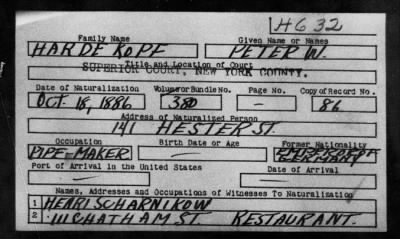 H632
Family Name Given Name or Names
HARDEKOPF PETER W.
Title and Location of Court
SUPERIOR COURT, NEW YORK COUNTY.
Date of Naturalization Volume or Bundle No. Page No. Copy of Record No.
OCT. 18, 1886 380 — 86
Address of Naturalized Person
141 HESTER ST.
Occupation Birth Date or Age Former Nationality
PIPE-MAKER — EMPEROR OF GERMANY
Port of Arrival in the United States Date of Arrival
— —
Names, Addresses and Occupations of Witnesses To Naturalization
1 HENRI SCHARNIKOW
2 111 CHATHAM ST. RESTAURANT.